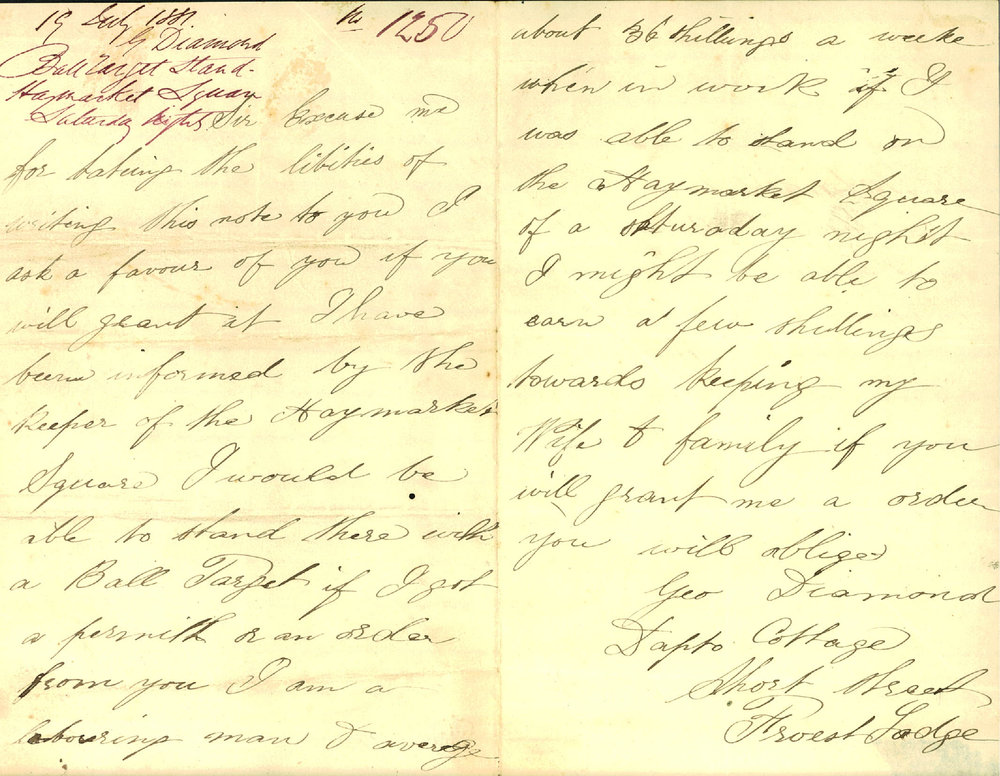 19 July 1881. No 1250
G Diamond
Ball Target Stand.
Haymarket Square
Saturday nights.
Sir Excuse me
for taking the libities of
writing this note to you I
ask a favour of you if you
will grant it I have
been informed by the
keeper of the Haymarket
Square I would be
able to stand there with
a Ball Target if I got
a permitt or an order
from you I am a
labouring man & averege
about 36 shillings a weeke
when in work if I
was able to stand on
the Haymarket Square
of a saturaday night
I might be able to
earn a few shillings
towards keeping my
Wife & family if you
will grant me a order
you will oblige
Geo Diamond
Dapto Cottage
Short Street
Froest Lodge